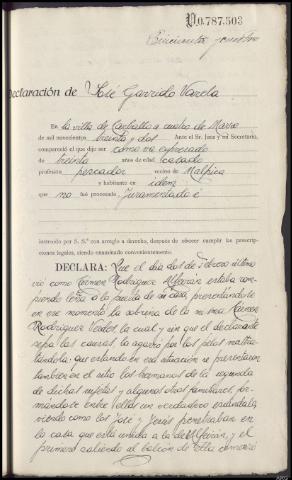 P.0.787.503
Cincuenta y cuatro
Declaración de José Garrido Varela
En la villa de Carballo a cuatro de Marzo
de mil novecientos treinta y dos Ante el Sr. Juez y mi Secretario,
compareció el que dijo ser como va expresado
de treinta años de edad casado
profesión pescador vecino de Malpica
y habitante en idem
que no fue procesado Juramentado é
instruído por S. S.ª con arreglo a derecho, después de ofrecer cumplir las prescrip-
ciones legales, siendo examinado convenientemente:
DECLARA: Que el día dos de Febrero último
vió como Carmen Rodriguez Alfeirán estaba rom-
piendo leña a la puerta de su casa, presentandose
en ese momento la sobrina de la misma Carmen
Rodriguez Verdes, la cual y sin que el declarante
sepa las causas, la agarró por los pelos maltra-
tandola; que estando en esa situación se presentaron
tambien en el sitio los hermanos de la segunda
de dichas sujetas y algunos otros familiares, for-
mándose entre todos un verdadero escándalo,
viendo como los José y Jesús penetraban en
la casa que está unida a la de Alfeirán, y el
primero saliendo al balcón de ella comenzó